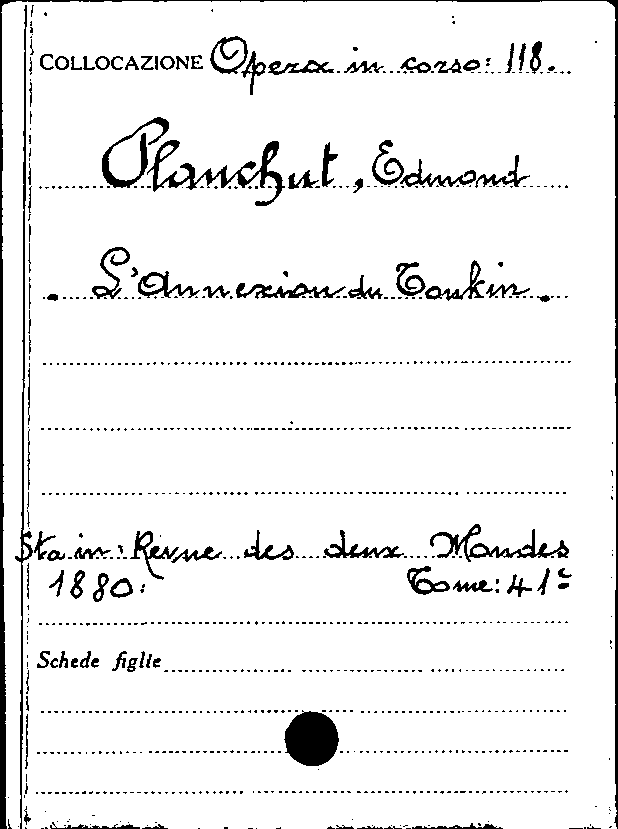 COLLOCAZIONE Opera in corso: 118.
Planchut, Edmond
. L'Annexion du Tonkin.
Sta in: Revue des deux Mondes
1880: Tome: 41e
Schede figlie